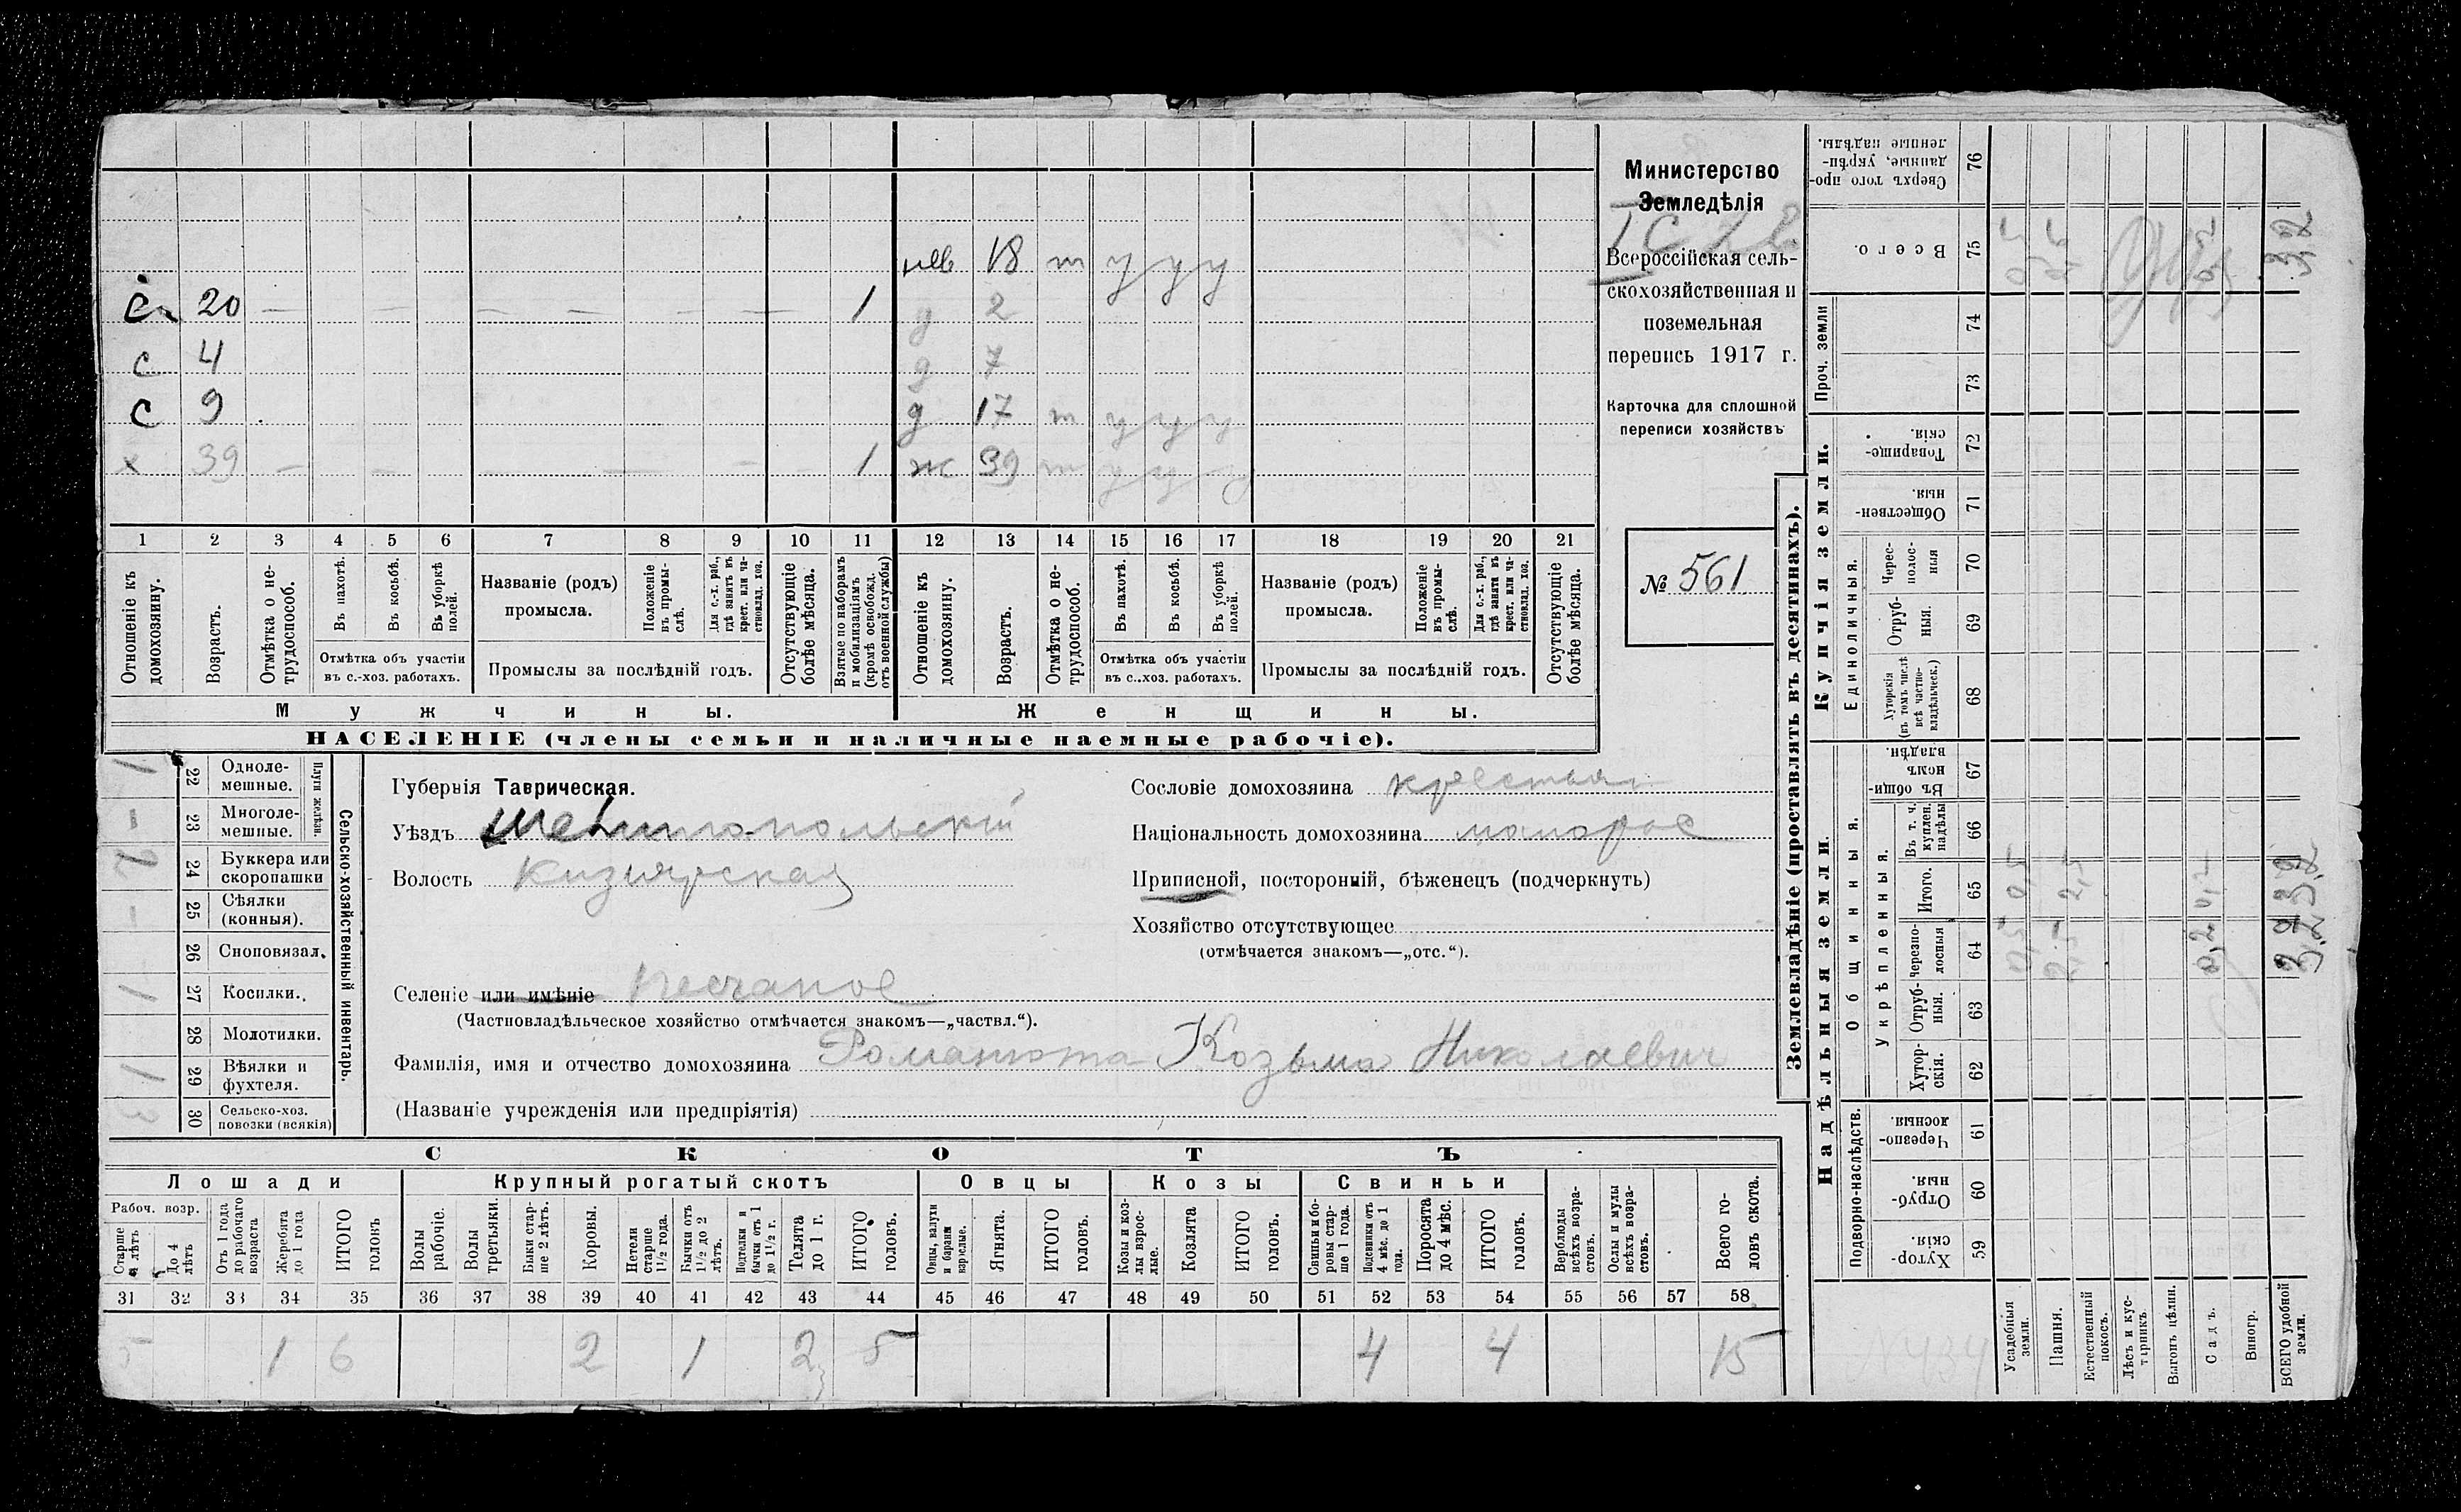 Министерство
Земледѣлія
Всероссійская сель-
скохозяйственная и
поземельная
перепись 1917 г.
Карточка для сплошной
переписи хозяйствъ
№ 561
нев 18 т у у у
с 20 — — — — — — 1 д 2
с 4 д 7
с 9 д 17 т у у у
х 39 — — — — — 1 ж 39 т у у у
1 2 3 4 5 6 7 8 9 10 11 12 13 14 15 16 17 18 19 20 21
Отношеніе къ домохозяину.
Возрастъ.
Отмѣтка о не-трудоспособ.
Въ пахотѣ.
Въ косьбѣ.
Въ уборкѣ полей.
Отмѣтка объ участіи въ с.-хоз. работахъ.
Названіе (родъ) промысла.
Положеніе въ промы-слѣ.
Для с.-х. раб., гдѣ занятъ въ крест. или ча-стновлад. хоз.
Промыслы за послѣдній годъ.
Отсутствующіе болѣе мѣсяца.
Взятые по наборамъ и мобилизаціямъ (кромѣ освобожд. отъ военной службы)
Отношеніе къ домохозяину.
Возрастъ.
Отмѣтка о не-трудоспособ.
Въ пахотѣ.
Въ косьбѣ.
Въ уборкѣ полей.
Отмѣтка объ участіи въ с..хоз. работахъ.
Названіе (родъ) промысла.
Положеніе въ промы-слѣ.
Для с.-х. раб., гдѣ занята въ крест. или ча-стновлад. хоз.
Промыслы за послѣдній годъ.
Отсутствующіе болѣе мѣсяца.
Мужчины. Женщины.
НАСЕЛЕНІЕ (члены семьи и наличные наемные рабочіе).
Сельско-хозяйственный инвентарь.
Плуги желѣзн.
1 22 Одноле-мешные.
— 23 Многоле-мешные.
2 24 Буккера или скоропашки
— 25 Сѣялки (конныя).
— 26 Сноповязал.
1 27 Косилки.
— 28 Молотилки.
1 29 Вѣялки и фухтеля.
3 30 Сельско-хоз. повозки (всякія)
Губернія Таврическая.
Уѣздъ Мелитопольскій
Волость Кизиярская
Сословіе домохозяина крестьян
Національность домохозяина малорос
Приписной, посторонній, бѣженецъ (подчеркнуть)
Хозяйство отсутствующее
(отмѣчается знакомъ—„отс.“).
Селеніе или имѣніе Песчаное
(Частновладѣльческое хозяйство отмѣчается знакомъ—„частвл.“).
Фамилія, имя и отчество домохозяина Романюта Козьма Николаевич
(Названіе учрежденія или предпріятія)
СКОТЪ
Лошади Крупный рогатый скотъ Овцы Козы Свиньи
Рабоч. возр.
Старше 4 лѣтъ
До 4 лѣтъ
Отъ 1 года до рабочаго возраста
Жеребята до 1 года
ИТОГО головъ
Волы рабочіе.
Волы третьяки.
Быки стар-ше 2 лѣтъ.
Коровы.
Нетели старше 1½ года.
Бычки отъ 1½ до 2 лѣтъ.
Подтелки и бычки отъ 1 до 1½ г.
Телята до 1 г.
ИТОГО головъ.
Овцы, валухи и бараны взрослые.
Ягнята.
ИТОГО головъ.
Козы и коз-лы взрос-лые.
Козлята
ИТОГО головъ.
Свиньи и бо-ровы стар-ше 1 года.
Подсвинки отъ 4 мѣс. до 1 года.
Поросята до 4 мѣс.
ИТОГО головъ.
Верблюды всѣхъ возра-стовъ.
Ослы и мулы всѣхъ возра-стовъ.
Всего го-ловъ скота.
31 32 33 34 35 36 37 38 39 40 41 42 43 44 45 46 47 48 49 50 51 52 53 54 55 56 57 58
5 1 6 2 1 2 5 4 4 15
Землевладѣніе (проставлять въ десятинахъ).
Надѣльныя земли. Купчія земли. Проч. земли
Подворно-наслѣдств. Общинныя. Укрѣпленныя. Единоличныя.
Сверхъ того про-данные, укрѣп-ленные надѣлы. 76
Всего. 75
74
73
Товарище-скія. 72
Обществен-ныя. 71
Черес-полос-ныя 70
Отруб-ныя. 69
Хуторскія (въ томъ числѣ всѣ частно-владѣльческ.) 68
Въ общи-номъ владѣн. 67
Въ т. ч. куплен. надѣлы 66
Итого. 65
Черезпо-лосныя 64
Отруб-ныя. 63
Хутор-скія. 62
Черезпо-лосныя. 61
Отруб-ныя. 60
Хутор-скія. 59
Усадебныя земли. 0,5 0,5 0,5
Пашня. 2,5 2,5 2,5
Естественный покосъ.
Лѣсъ и кус-тарникъ.
Выгонъ цѣлин.
Садъ. 0,2 0,2 0,2
Виногр.
ВСЕГО удобной земли. 3,2 3,2 3,2
N 434